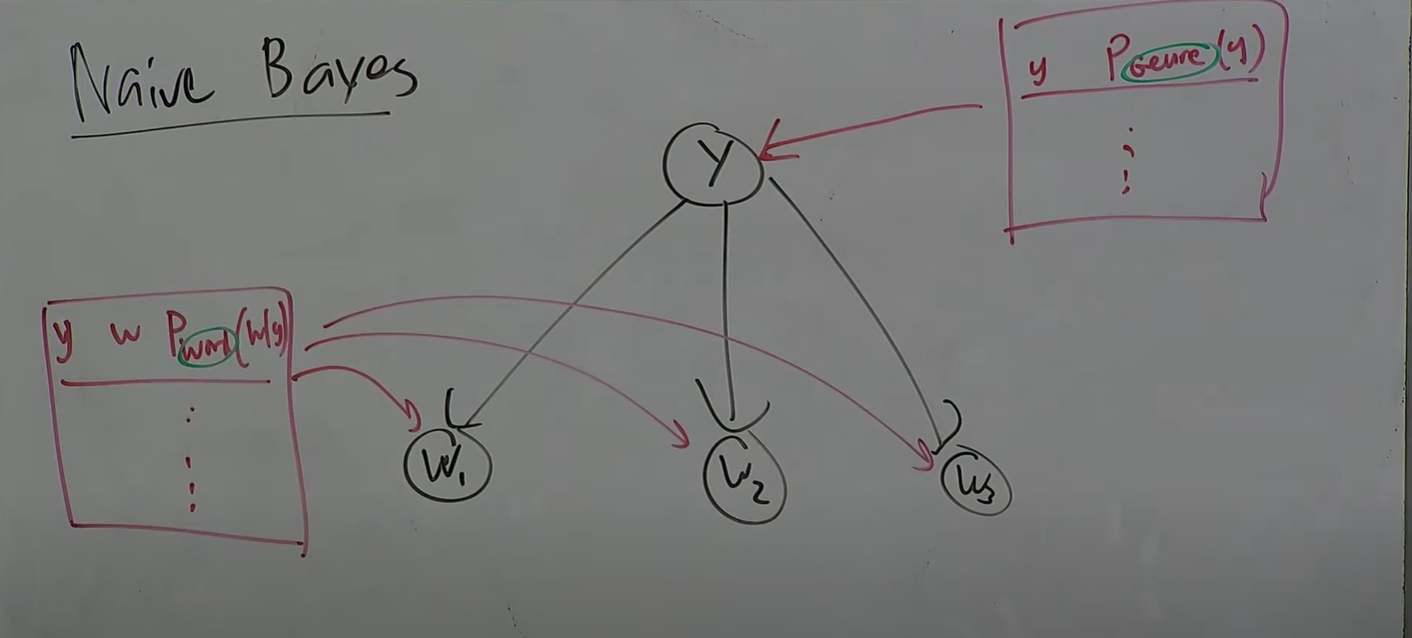 Naive Bayes
y P_Genre(y)
Y
y w P_word(w|y)
W1
W2
W3